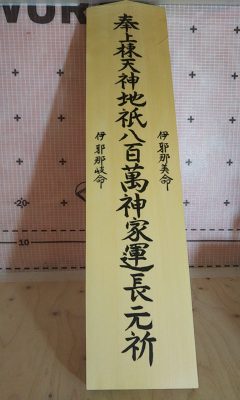 奉上棟天神地祇八百萬神家運長元祈
伊耶那美命
伊耶那岐命
20
10